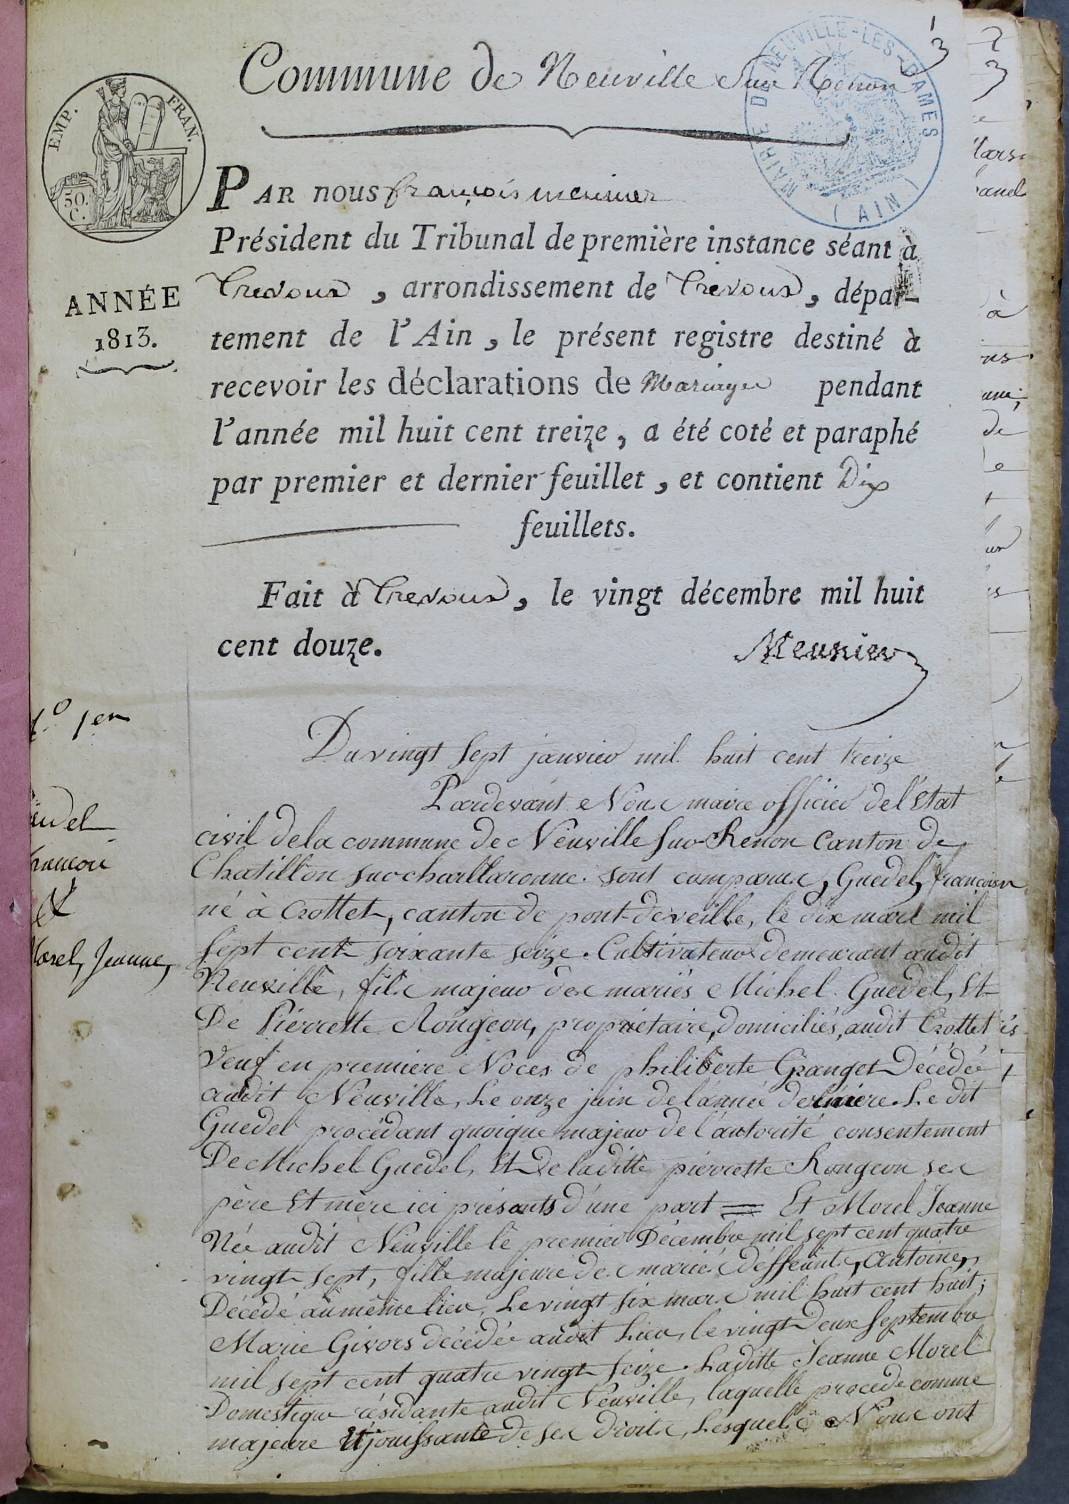 Commune de Neuville Sur Renon
MAIRIE DE NEUVILLE-LES-DAMES
(AIN)
13
EMP. FRAN.
50.
C.
ANNÉE
1813.
PAR nous françois meunier
Président du Tribunal de première instance séant à
Trevoux, arrondissement de Trevoux, dépar-
tement de l'Ain, le présent registre destiné à
recevoir les déclarations de Mariages pendant
l'année mil huit cent treize, a été coté et paraphé
par premier et dernier feuillet, et contient Dix
feuillets.
Fait à Trevoux, le vingt décembre mil huit
cent douze.
Meunier
1er
Du vingt sept janvier mil huit cent treize
Pardevant Nous maire officier de l'état
civil de la commune de Neuville Sur Renon canton de
Chatillon sur challaronne. sont comparus, Guedel, françois
né à Crottet, canton de pont de veille, le dix mars mil
sept cent soixante seize. Cultivateur demeurant audit
Neuville, fils majeur des mariés Michel Guedel, Et
De Pierrette Rongeon, propriétaire, domiciliés, audit Crottet
Veuf en premiere Noces de philiberte Granget Décédée
audit Neuville, Le onze juin de l'année derniere. Le dit
Guedel procédant quoique majeur de l'autorité consentement
De Michel Guedel, Et De laditte pierrette Rongeon ses
père Et mère ici présents d'une part = Et Morel Jeanne
Née audit Neuville le premier Décembre mil sept cent quatre
vingt sept, fille majeure des mariés déffunts, Antoine,
Décédé au même lieu, Le vingt six mars mil huit cent huit;
Marie Givors décédée audit Lieu, le vingt deux Septembre
mil sept cent quatre vingt seize. Laditte Jeanne Morel
Domestique résidante audit Neuville, laquelle procede comme
majeure Et jouissante de ses droits, Lesquels Nous ont
Et
Morel, Jeanne,